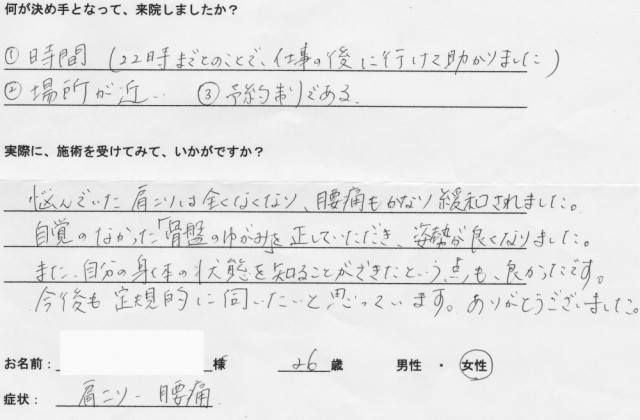 何が決め手となって、来院しましたか？
① 時間 (22時までとのことで、仕事の後に行けて助かりました)
② 場所が近い ③ 予約制である.
実際に、施術を受けてみて、いかがですか？
悩んでいた肩こりは全くなくなり、腰痛もかなり緩和されました。
自覚のなかった「骨盤のゆがみ」を正していただき、姿勢が良くなりました。
また、自分の身体の状態を知ることができたという点も、良かったです。
今後も定規的に伺いたいと思っています。ありがとうございました。
お名前： 様 26 歳 男性 ・ 女性
症状： 肩こり - 腰痛